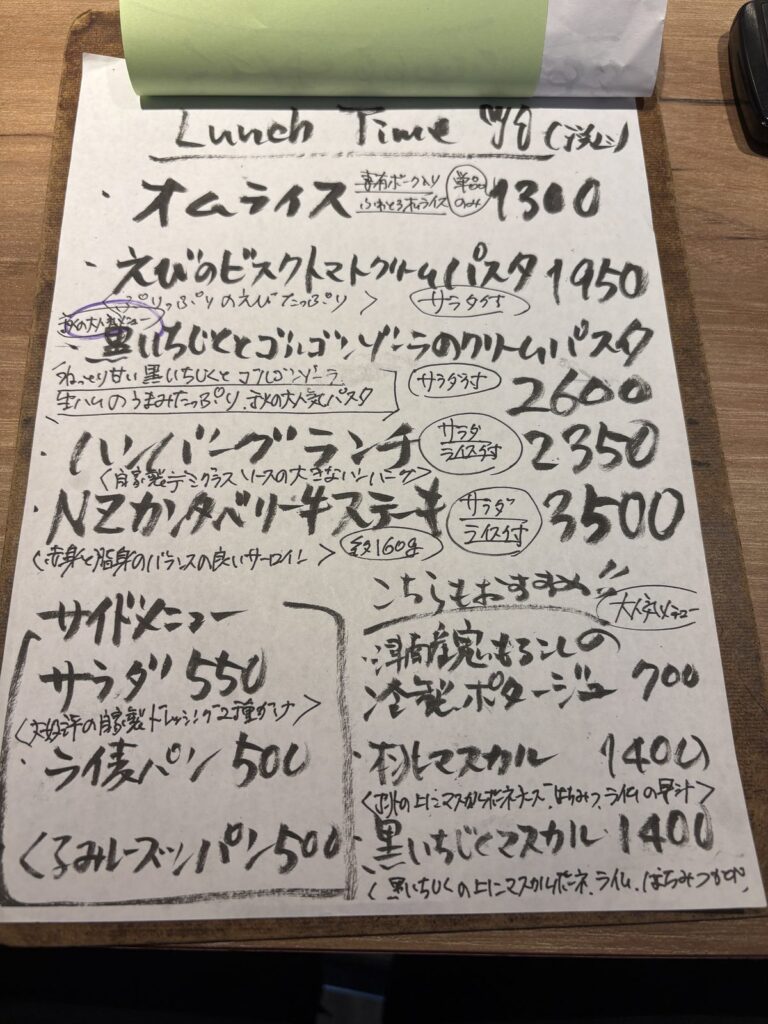 Lunch Time
・オムライス ポークハム ふわとろオムライス 単品のみ 1300
・えびのビスクトマトクリームパスタ 1950
ぷりっぷりのえびたっぷり〉 サラダ付
秋の大人気メニュー
・黒いちじくとゴルゴンゾーラのクリームパスタ
ねっとり甘い黒いちじくとゴルゴンゾーラ サラダ付 2600
生ハムのうまみたっぷり、秋の大人気パスタ
・ハンバーグランチ サラダ ライス付 2350
〈自家製デミグラスソースの大きなハンバーグ〉
・NZカンタベリー牛ステーキ サラダ ライス付 3500
〈赤身と脂身のバランスの良いサーロイン〉 約160g
サイドメニュー
サラダ 550
〈大好評の自家製ドレッシング2種がけ〉
・ライ麦パン 500
くるみレーズンパン 500
こちらもおすすめ!! 大人気メニュー
・津南産完いもろこしの
冷製ポタージュ 700
・桃とマスカル 1400
〈桃の上にマスカルポーネチーズ、はちみつ、ライムの果汁〉
・黒いちじくとマスカル 1400
〈黒いちじくの上にマスカルポーネ、ライム、はちみつがけ〉